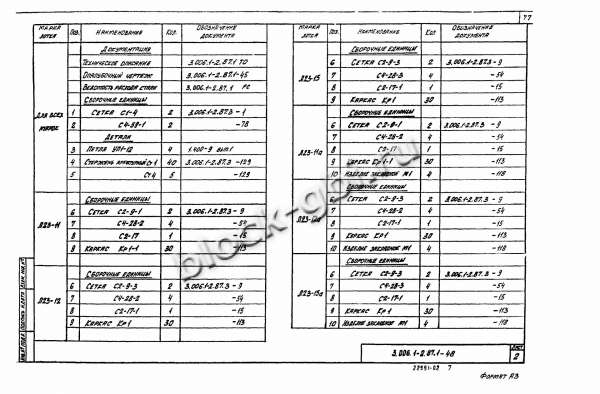 77
МАРКА ЛОТКА Поз. НАИМЕНОВАНИЕ Кол. ОБОЗНАЧЕНИЕ ДОКУМЕНТА
ДОКУМЕНТАЦИЯ
ТЕХНИЧЕСКОЕ ОПИСАНИЕ 3.006.1-2.87.1 ТО
ОПАЛУБОЧНЫЙ ЧЕРТЕЖ 3.006.1-2.87.1-45
ВЕДОМОСТЬ РАСХОДА СТАЛИ 3.006.1-2.87.1 РС
СБОРОЧНЫЕ ЕДИНИЦЫ
ДЛЯ ВСЕХ МАРОК
1 СЕТКА С1-4 2 3.006.1-2.87.3-1
2 С4-38-1 2 -78
ДЕТАЛИ
3 ПЕТЛЯ УП1-12 4 1.400-9 вып.1
4 СТЕРЖЕНЬ АРМАТУРНЫЙ Ст1 40 3.006.1-2.87.3-129
5 Ст4 5 -129
СБОРОЧНЫЕ ЕДИНИЦЫ
Л23-11 6 СЕТКА С2-9-1 2 3.006.1-2.87.3-9
7 С4-28-2 4 -54
8 С2-17 1 -15
9 КАРКАС Кр1-1 30 -113
СБОРОЧНЫЕ ЕДИНИЦЫ
Л23-12 6 СЕТКА С2-9-3 2 3.006.1-2.87.3-9
7 С4-28-2 4 -54
8 С2-17-1 1 -15
9 КАРКАС Кр1 30 -113
МАРКА ЛОТКА Поз. НАИМЕНОВАНИЕ Кол ОБОЗНАЧЕНИЕ ДОКУМЕНТА
СБОРОЧНЫЕ ЕДИНИЦЫ
Л23-15 6 СЕТКА С2-9-3 2 3.006.1-2.87.3-9
7 С4-28-3 4 -54
8 С2-17-1 1 -15
9 КАРКАС Кр1 30 -113
СБОРОЧНЫЕ ЕДИНИЦЫ
Л23-11а 6 СЕТКА С2-9-1 2 3.006.1-2.87.3-9
7 С4-28-2 4 -54
8 С2-17 1 -15
9 КАРКАС Кр1-1 30 -113
10 ИЗДЕЛИЕ ЗАКЛАДНОЕ М1 4 -118
СБОРОЧНЫЕ ЕДИНИЦЫ
Л23-12а 6 СЕТКА С2-9-3 2 3.006.1-2.87.3-9
7 С4-28-2 4 -54
8 С2-17-1 1 -15
9 КАРКАС Кр1 30 -113
10 ИЗДЕЛИЕ ЗАКЛАДНОЕ М1 4 -118
СБОРОЧНЫЕ ЕДИНИЦЫ
Л23-15а 6 СЕТКА С2-9-3 2 3.006.1-2.87.3-9
7 С4-28-3 4 -54
8 С2-17-1 1 -15
9 КАРКАС Кр1 30 -113
10 ИЗДЕЛИЕ ЗАКЛАДНОЕ М1 4 -118
block-gbi.ru
3.006.1-2.87.1-48
ЛИСТ 2
22991-02 7
ФОРМАТ А3